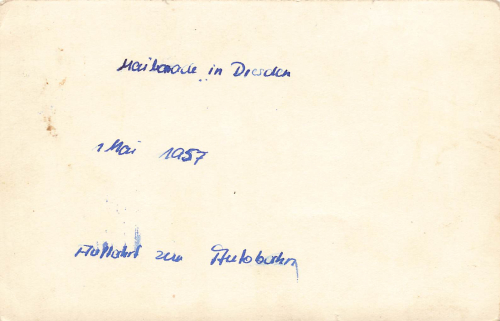 Maiparade in Dresden
1 Mai 1957
Auffahrt zur Autobahn